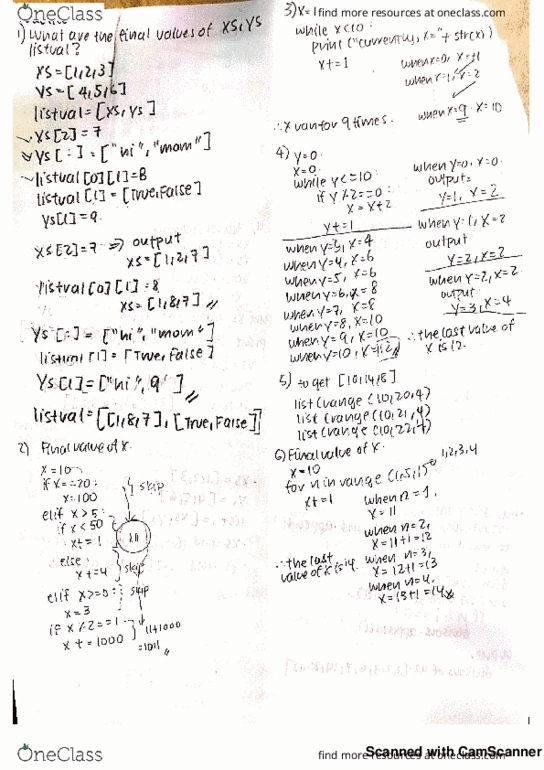 OneClass
find more resources at oneclass.com
1) What are the final values of xs, ys
listval?
xs = [1,2,3]
ys = [4,5,6]
listval = [xs, ys]
xs[2] = 7
ys[:] = ["hi", "mom"]
listval[0][1] = 8
listval[1] = [True, False]
ys[1] = 9
xs[2] = 7 ⇒ output
xs = [1,2,7]
listval[0][1] = 8
xs = [1,8,7] //
ys[:] = ["hi", "mom"]
listval[1] = [True, False]
ys[1] = ["hi", 9]
listval = [[1,8,7], [True, False]]
2) Final value of x.
x = 10
if x == 20:
x = 100
skip
elif x > 5:
if x < 50
x += 1
11
else:
x += 4
skip
elif x >= 0:
skip
x = 3
if x % 2 == 1
11+1000
x += 1000
= 1011 //
3) x = 1
while x < 10:
print ("currently, x=" + str(x))
x += 1
when x=9 x=10
∴ x ran for 9 times.
4) y=0
x=0
while y <= 10:
if y % 2 == 0:
x = x+2
y += 1
when y=0, x=0
output=
y=1, x=2
when y=1, x=2
output
y=2, x=2
when y=2, x=2
output
y=3, x=4
when y=3, x=4
when y=4, x=6
when y=5, x=6
when y=6, x=8
when y=7, x=8
when y=8, x=10
when y=9, x=10
when y=10, x=12
∴ the last value of
x is 12.
5) to get [10,14,18]
list(range(10,20,4)
list(range(10,21,4)
list(range(10,22,4)
6) Final value of x.
x = 10
for n in range (1,5,1)
1,2,3,4
x += 1
when n=1,
x=11
when n=2,
x=11+1=12
when n=3,
x=12+1=13
when n=4,
x=13+1=14
∴ the last
value of x is 14.
OneClass
find more resources at oneclass.com
Scanned with CamScanner